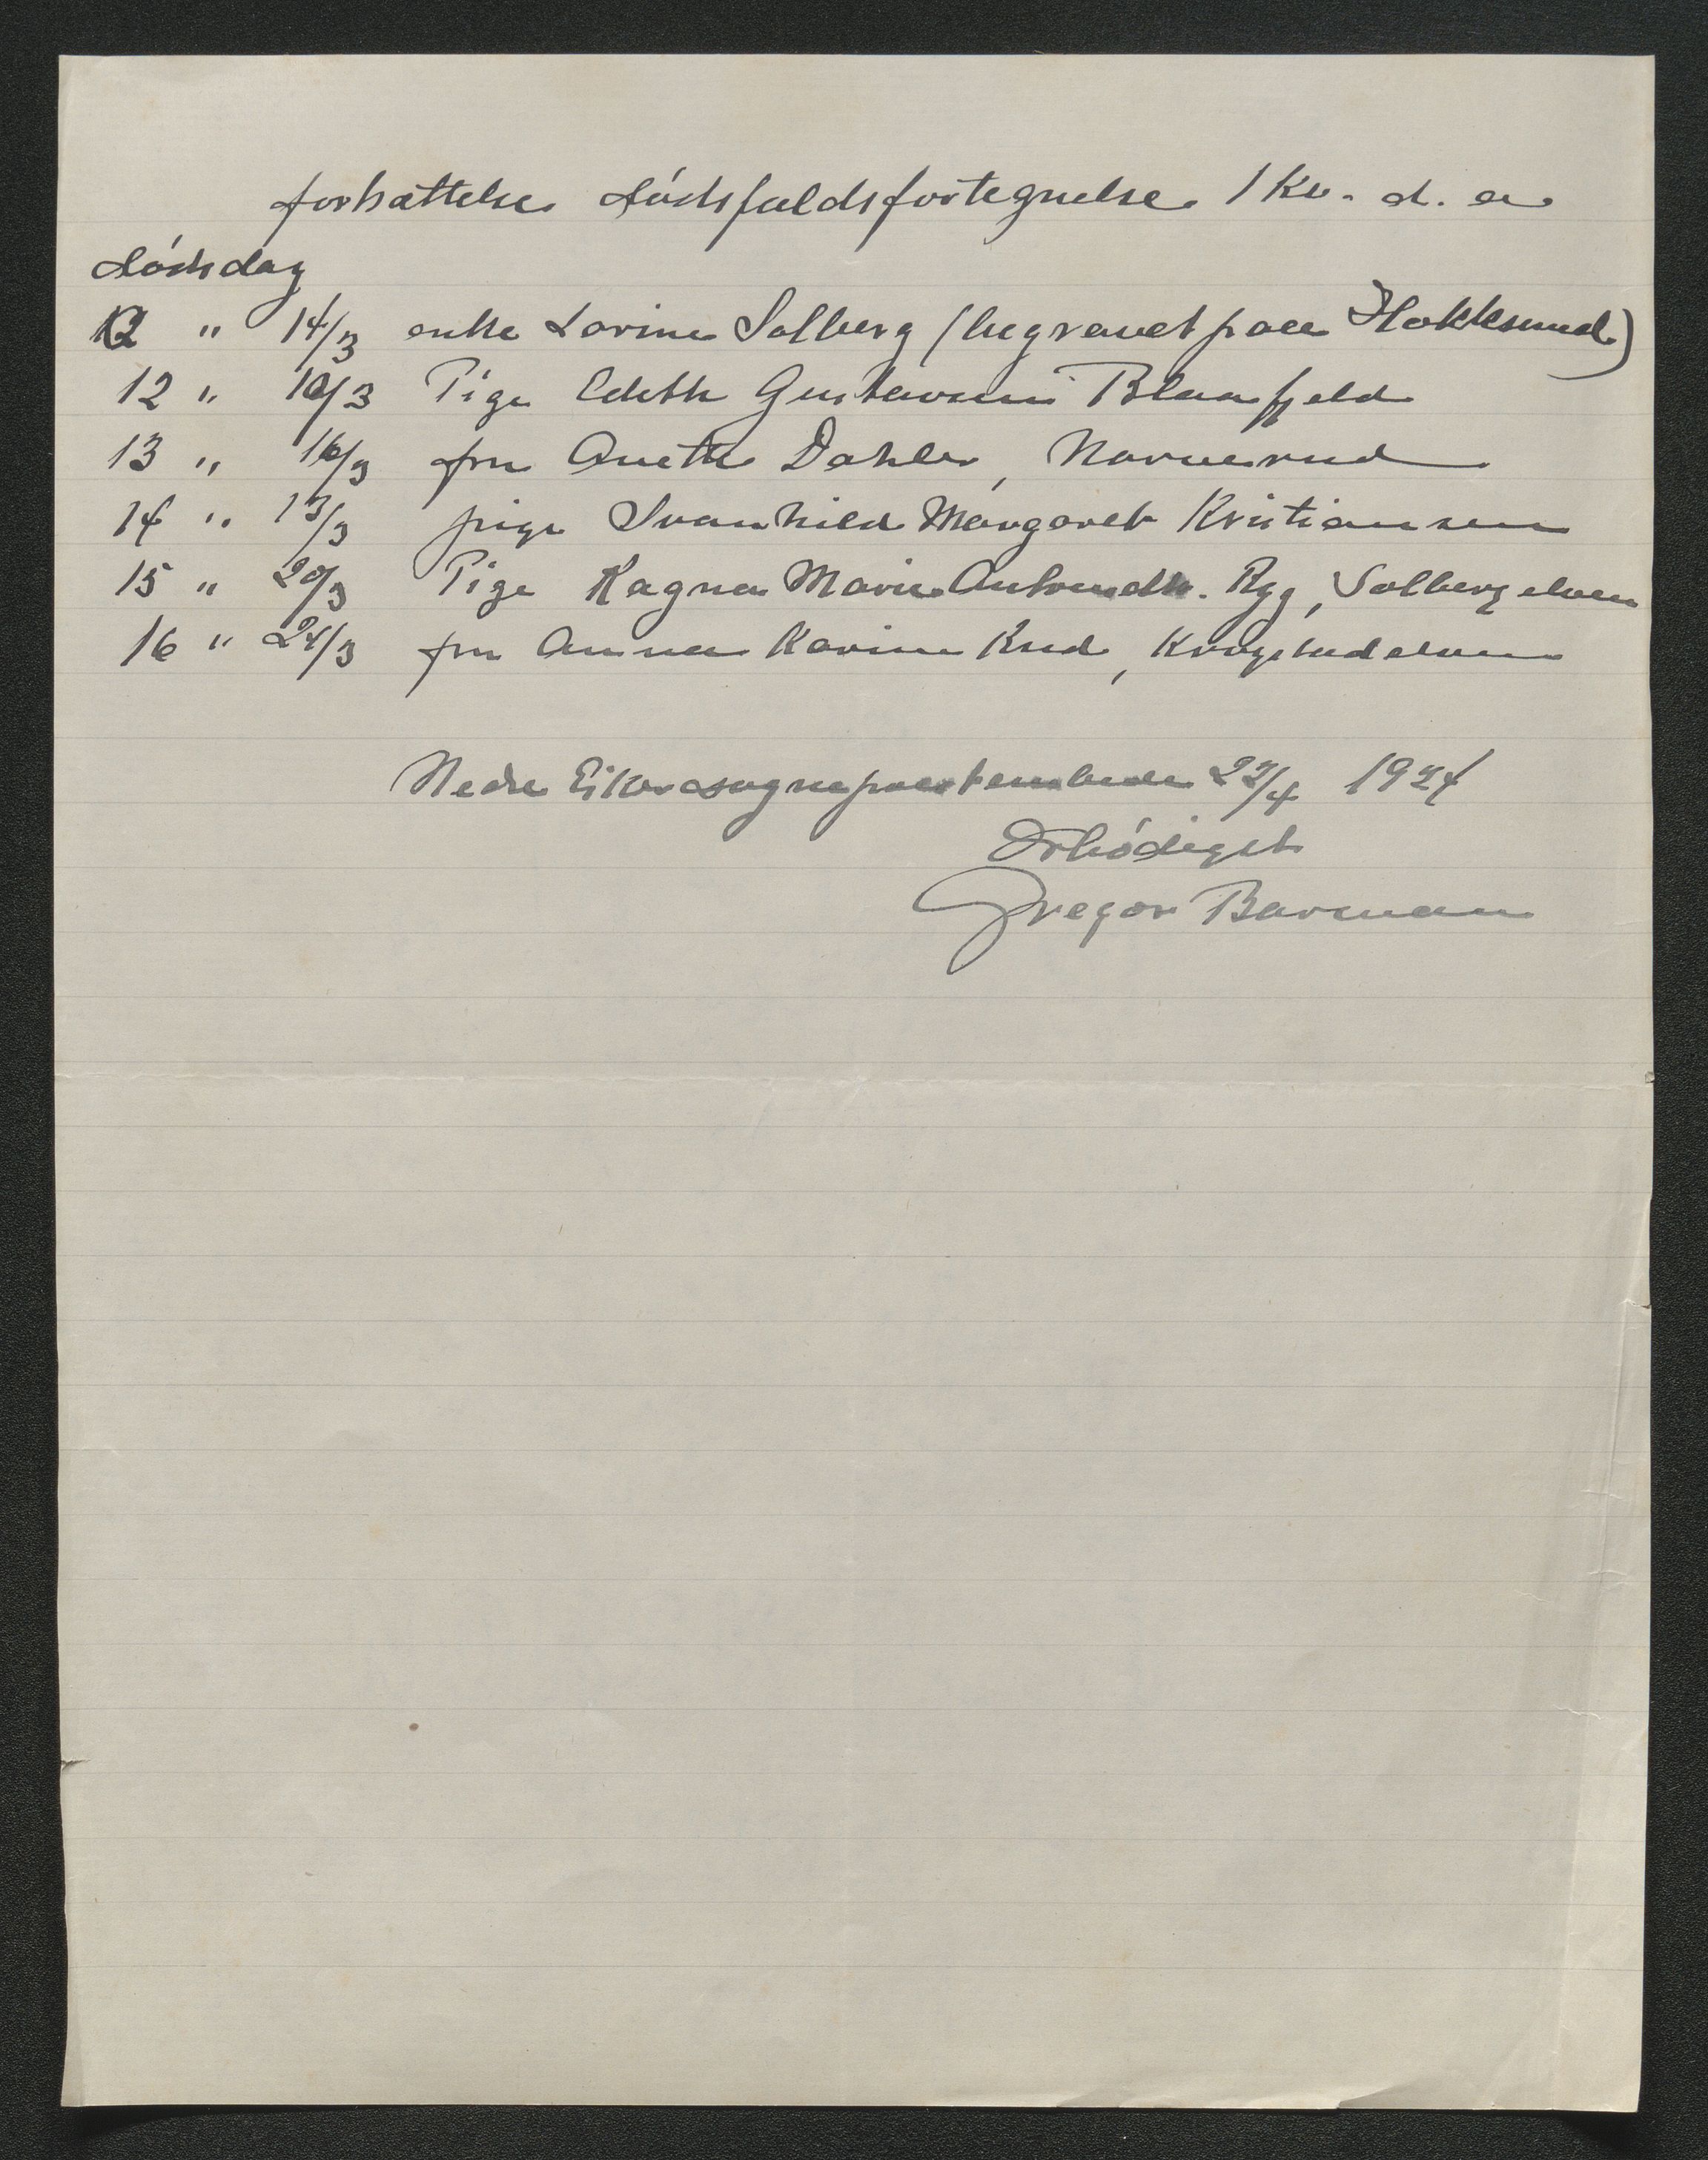 fortsættelse dödsfaldsfortegnelse 1 kv. d. a
dödsdag
12 " 14/3 enke Lovine Solberg (begravet paa Hokksund)
12 " 10/3 Pige Edith Gustavsen Blaafjeld
13 " 16/3 fru Anette Dahler, Narverud
14 " 13/3 pige Svanhild Margaret Kristiansen
15 " 20/3 Pige Ragna Marie Antonsdtr. Rygg, Solbergelven
16 " 24/3 fru Anna Karine Rud, Krogstadelven
Nedre Eiker sogneprestembede 22/4 1924
Ærbödigst
Gregor Barman